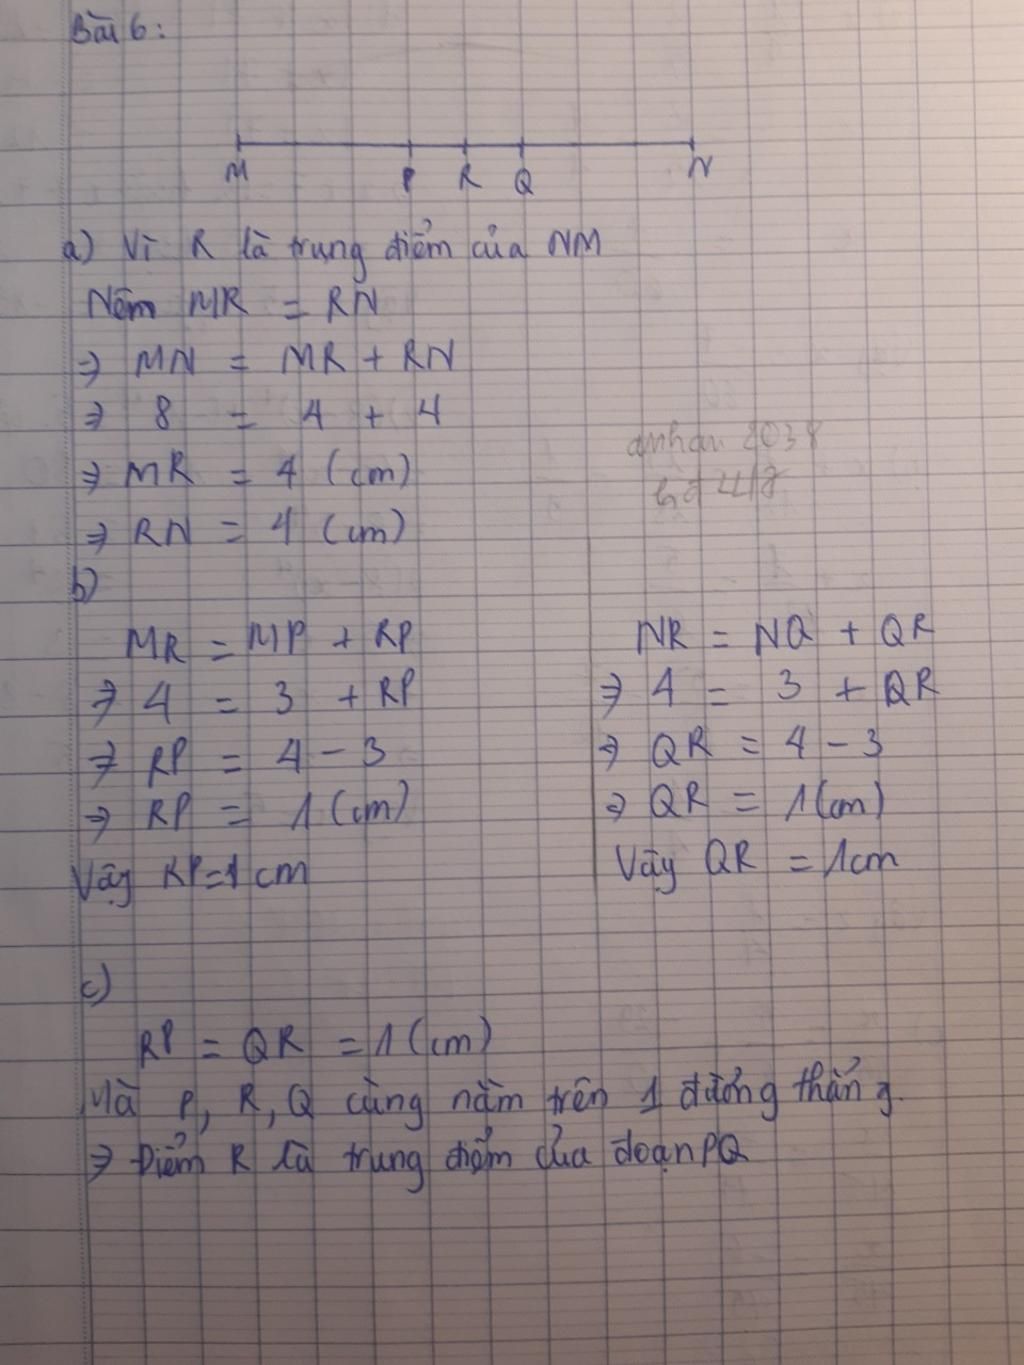 Bài 6:
M P R Q N
a) Vì R là trung điểm của NM
Nêm MR = RN
⇒ MN = MR + RN
⇒ 8 = 4 + 4
⇒ MR = 4 (cm)
⇒ RN = 4 (cm)
b)
MR = MP + RP
⇒ 4 = 3 + RP
⇒ RP = 4 - 3
⇒ RP = 1 (cm)
Vậy RP=1 cm
NR = NQ + QR
⇒ 4 = 3 + QR
⇒ QR = 4 - 3
⇒ QR = 1 (cm)
Vậy QR = 1cm
c)
RP = QR = 1 (cm)
Mà P, R, Q cùng nằm trên 1 đường thẳng.
⇒ Điểm R là trung điểm của đoạn PQ